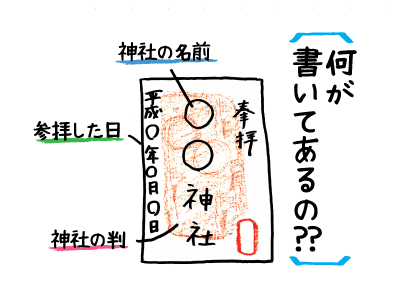 何が
書いてあるの??
神社の名前
奉拝
〇〇神社
平成〇年〇月〇日
参拝した日
神社の判